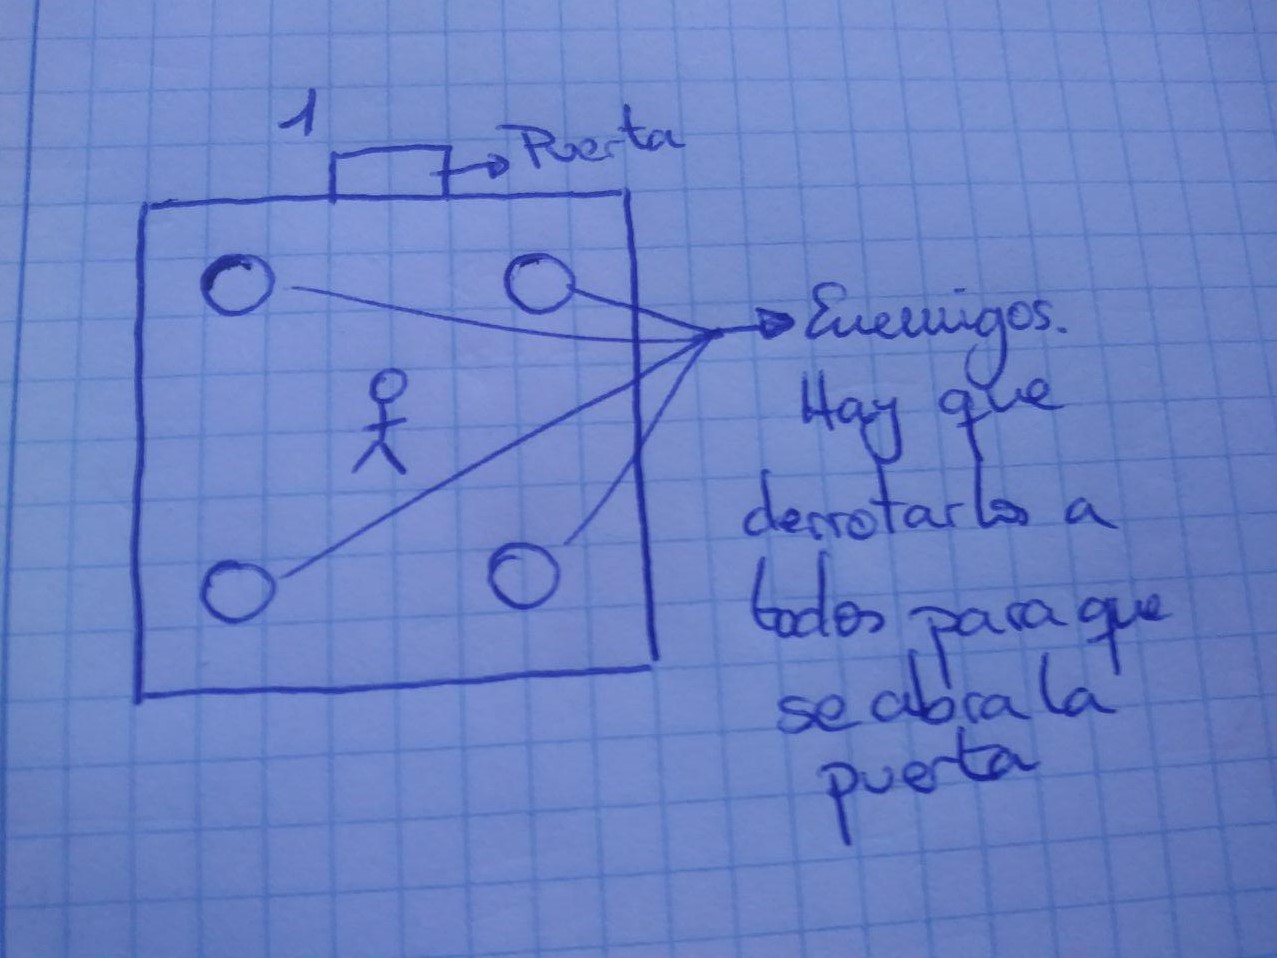 1
Puerta
Enemigos.
Hay que
derrotarlos a
todos para que
se abra la
puerta